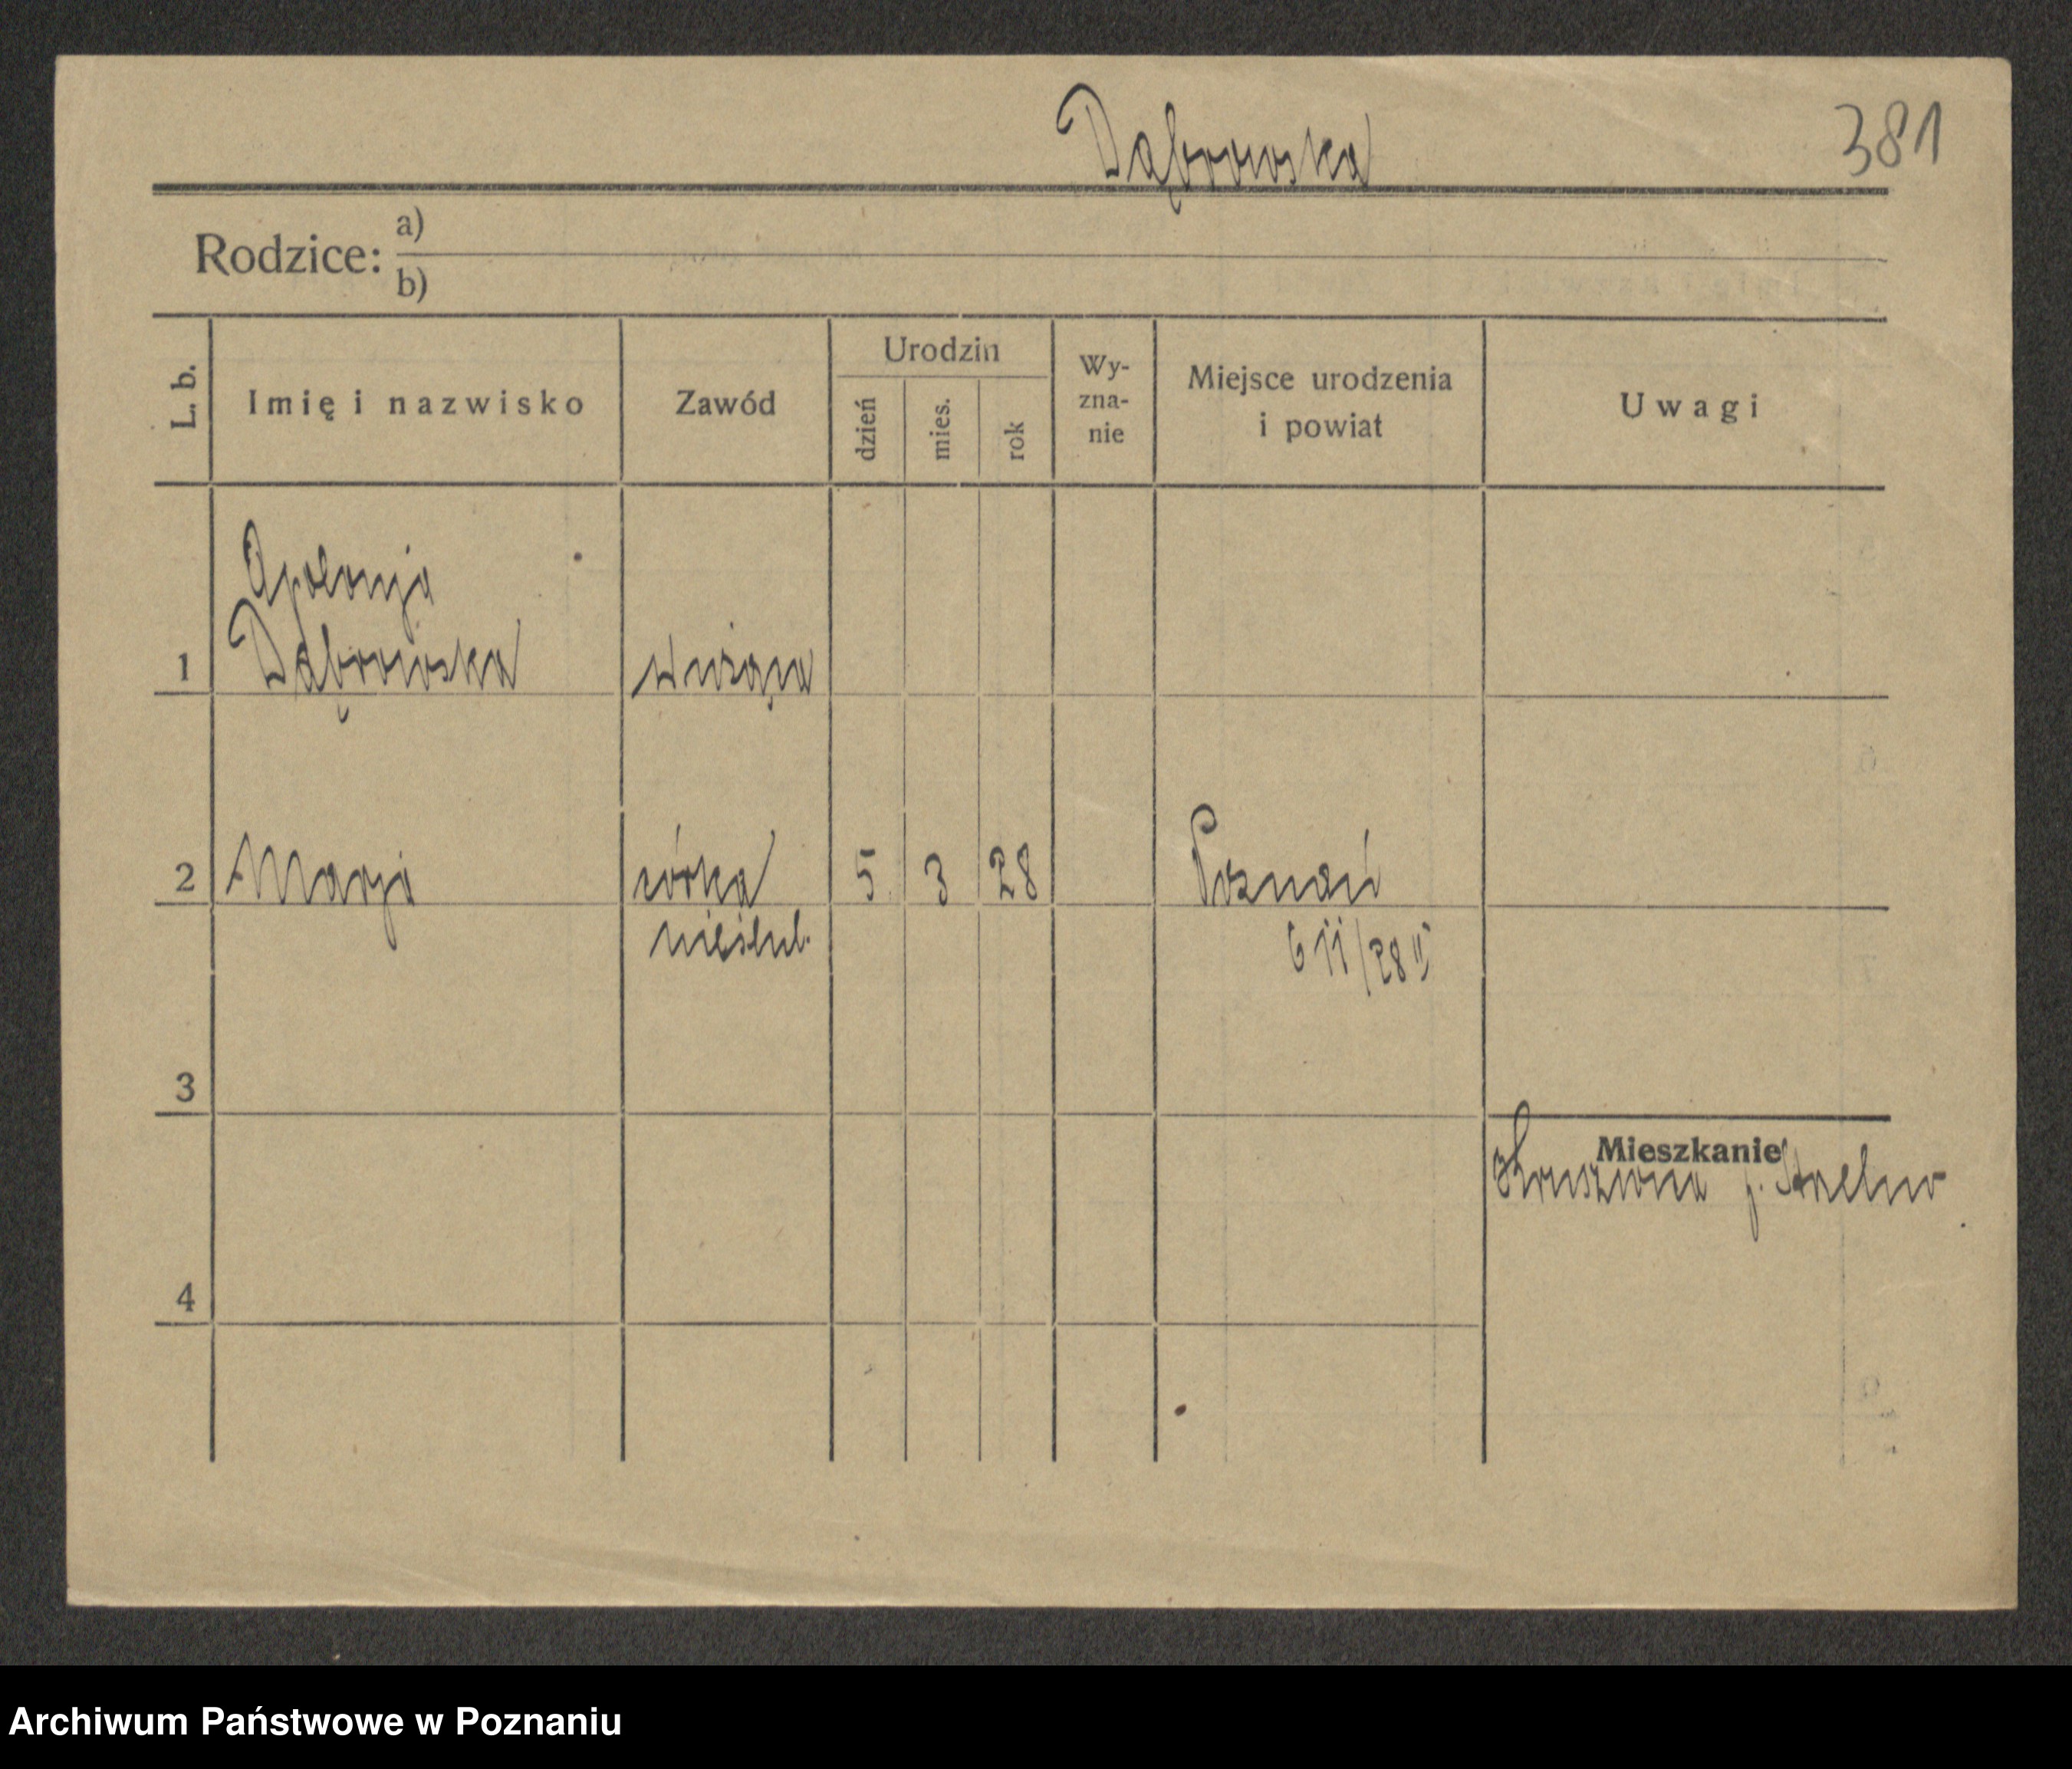 Dąbrowska 381
Rodzice: a)
b)
L. b. Imię i nazwisko Zawód Urodzin dzień mies. rok Wy-zna-nie Miejsce urodzenia i powiat Uwagi
Apolonja
1 Dąbrowska służąca
2 Marja córka 5 3 28 Poznań
nieślub. 611/28
3
Mieszkanie
Kruszwica p. Strzelno
4
Archiwum Państwowe w Poznaniu